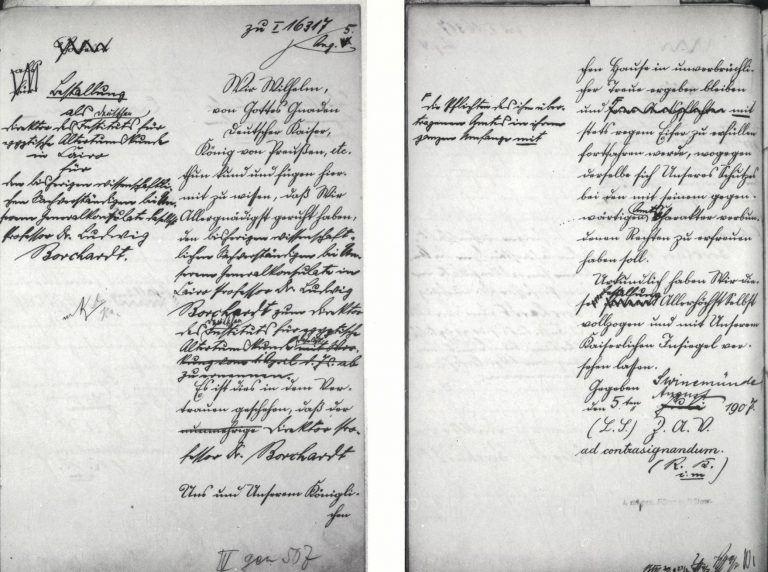 zu I 16317 5.
Aug.
Bestallung
als
Direktor des Deutschen Instituts für
ägyptische Altertumskunde
in Cairo
für
den bisherigen wissenschaftli-
chen Sachverständigen bei Un-
serem Generalkonsulate daselbst
Professor Dr. Ludwig
Borchardt.
Wir Wilhelm,
von Gottes Gnaden
Deutscher Kaiser,
König von Preußen, etc.
thun kund und fügen hier-
mit zu wissen, daß Wir
Allergnädigst geruht haben,
den bisherigen wissenschaft-
lichen Sachverständigen bei Un-
serem Generalkonsulate in
Cairo Professor Dr. Ludwig
Borchardt zum Direktor
des Deutschen Instituts für ägyptische
Altertumskunde
zu ernennen.
Es ist dies in dem Ver-
trauen geschehen, daß der
nunmehrige Direktor Pro-
fessor Dr. Borchardt
Uns und Unserem Königli-
chen
IV gen 507
chen Hause in unverbrüchli-
cher Treue ergeben bleiben
und mit
stets regem Eifer zu erfüllen
fortfahren werde, wogegen
derselbe sich Unseres Schutzes
bei den mit seinem gegen-
wärtigen Amte u. Charakter verbun-
denen Rechten zu erfreuen
haben soll.
Die Pflichten des ihm über-
tragenen Amtes in ihrem
ganzen Umfange mit
Urkundlich haben Wir die-
se Bestallung Allerhöchstselbst
vollzogen und mit Unserem
Kaiserlichen Insiegel ver-
sehen lassen.
Gegeben Swinemünde
den 5ten August 1907.
(L.S.) Z. A. V.
ad contrasignandum.
(R. K.)
i.m.